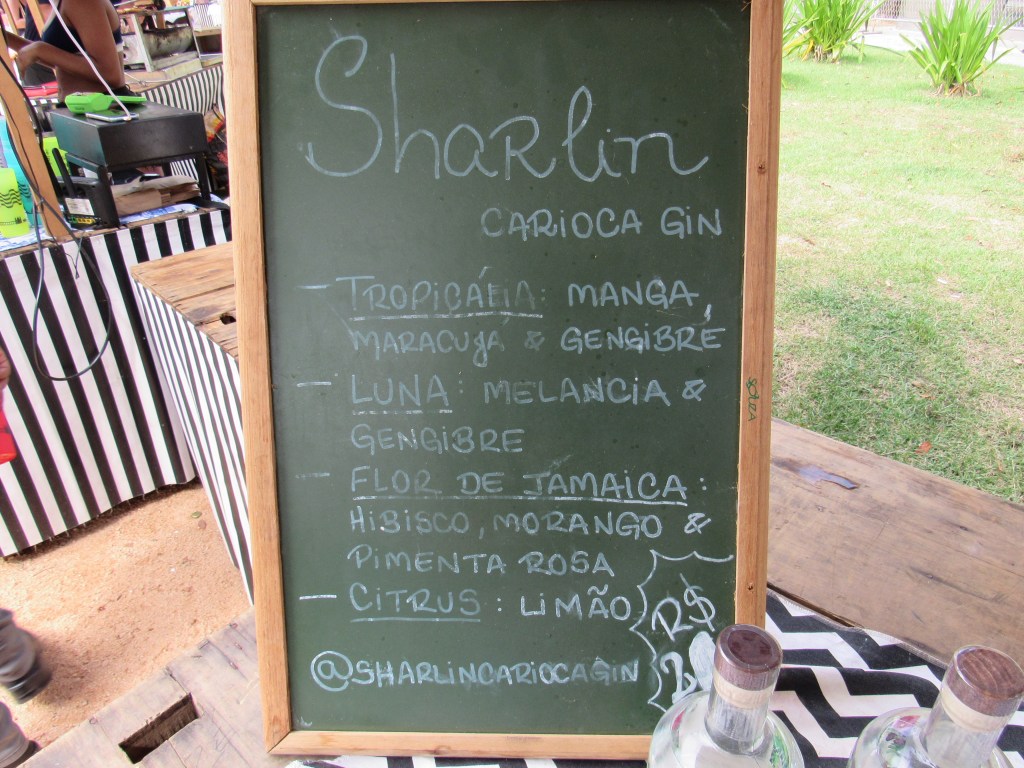 Sharlin
CARIOCA GIN
- TROPICÁLIA: MANGA,
MARACUYÁ & GENGIBRE
- LUNA: MELANCIA &
GENGIBRE
- FLOR DE JAMAICA:
HIBISCO, MORANGO &
PIMENTA ROSA
- CITRUS: LIMÃO
R$
@SHARLINCARIOCAGIN